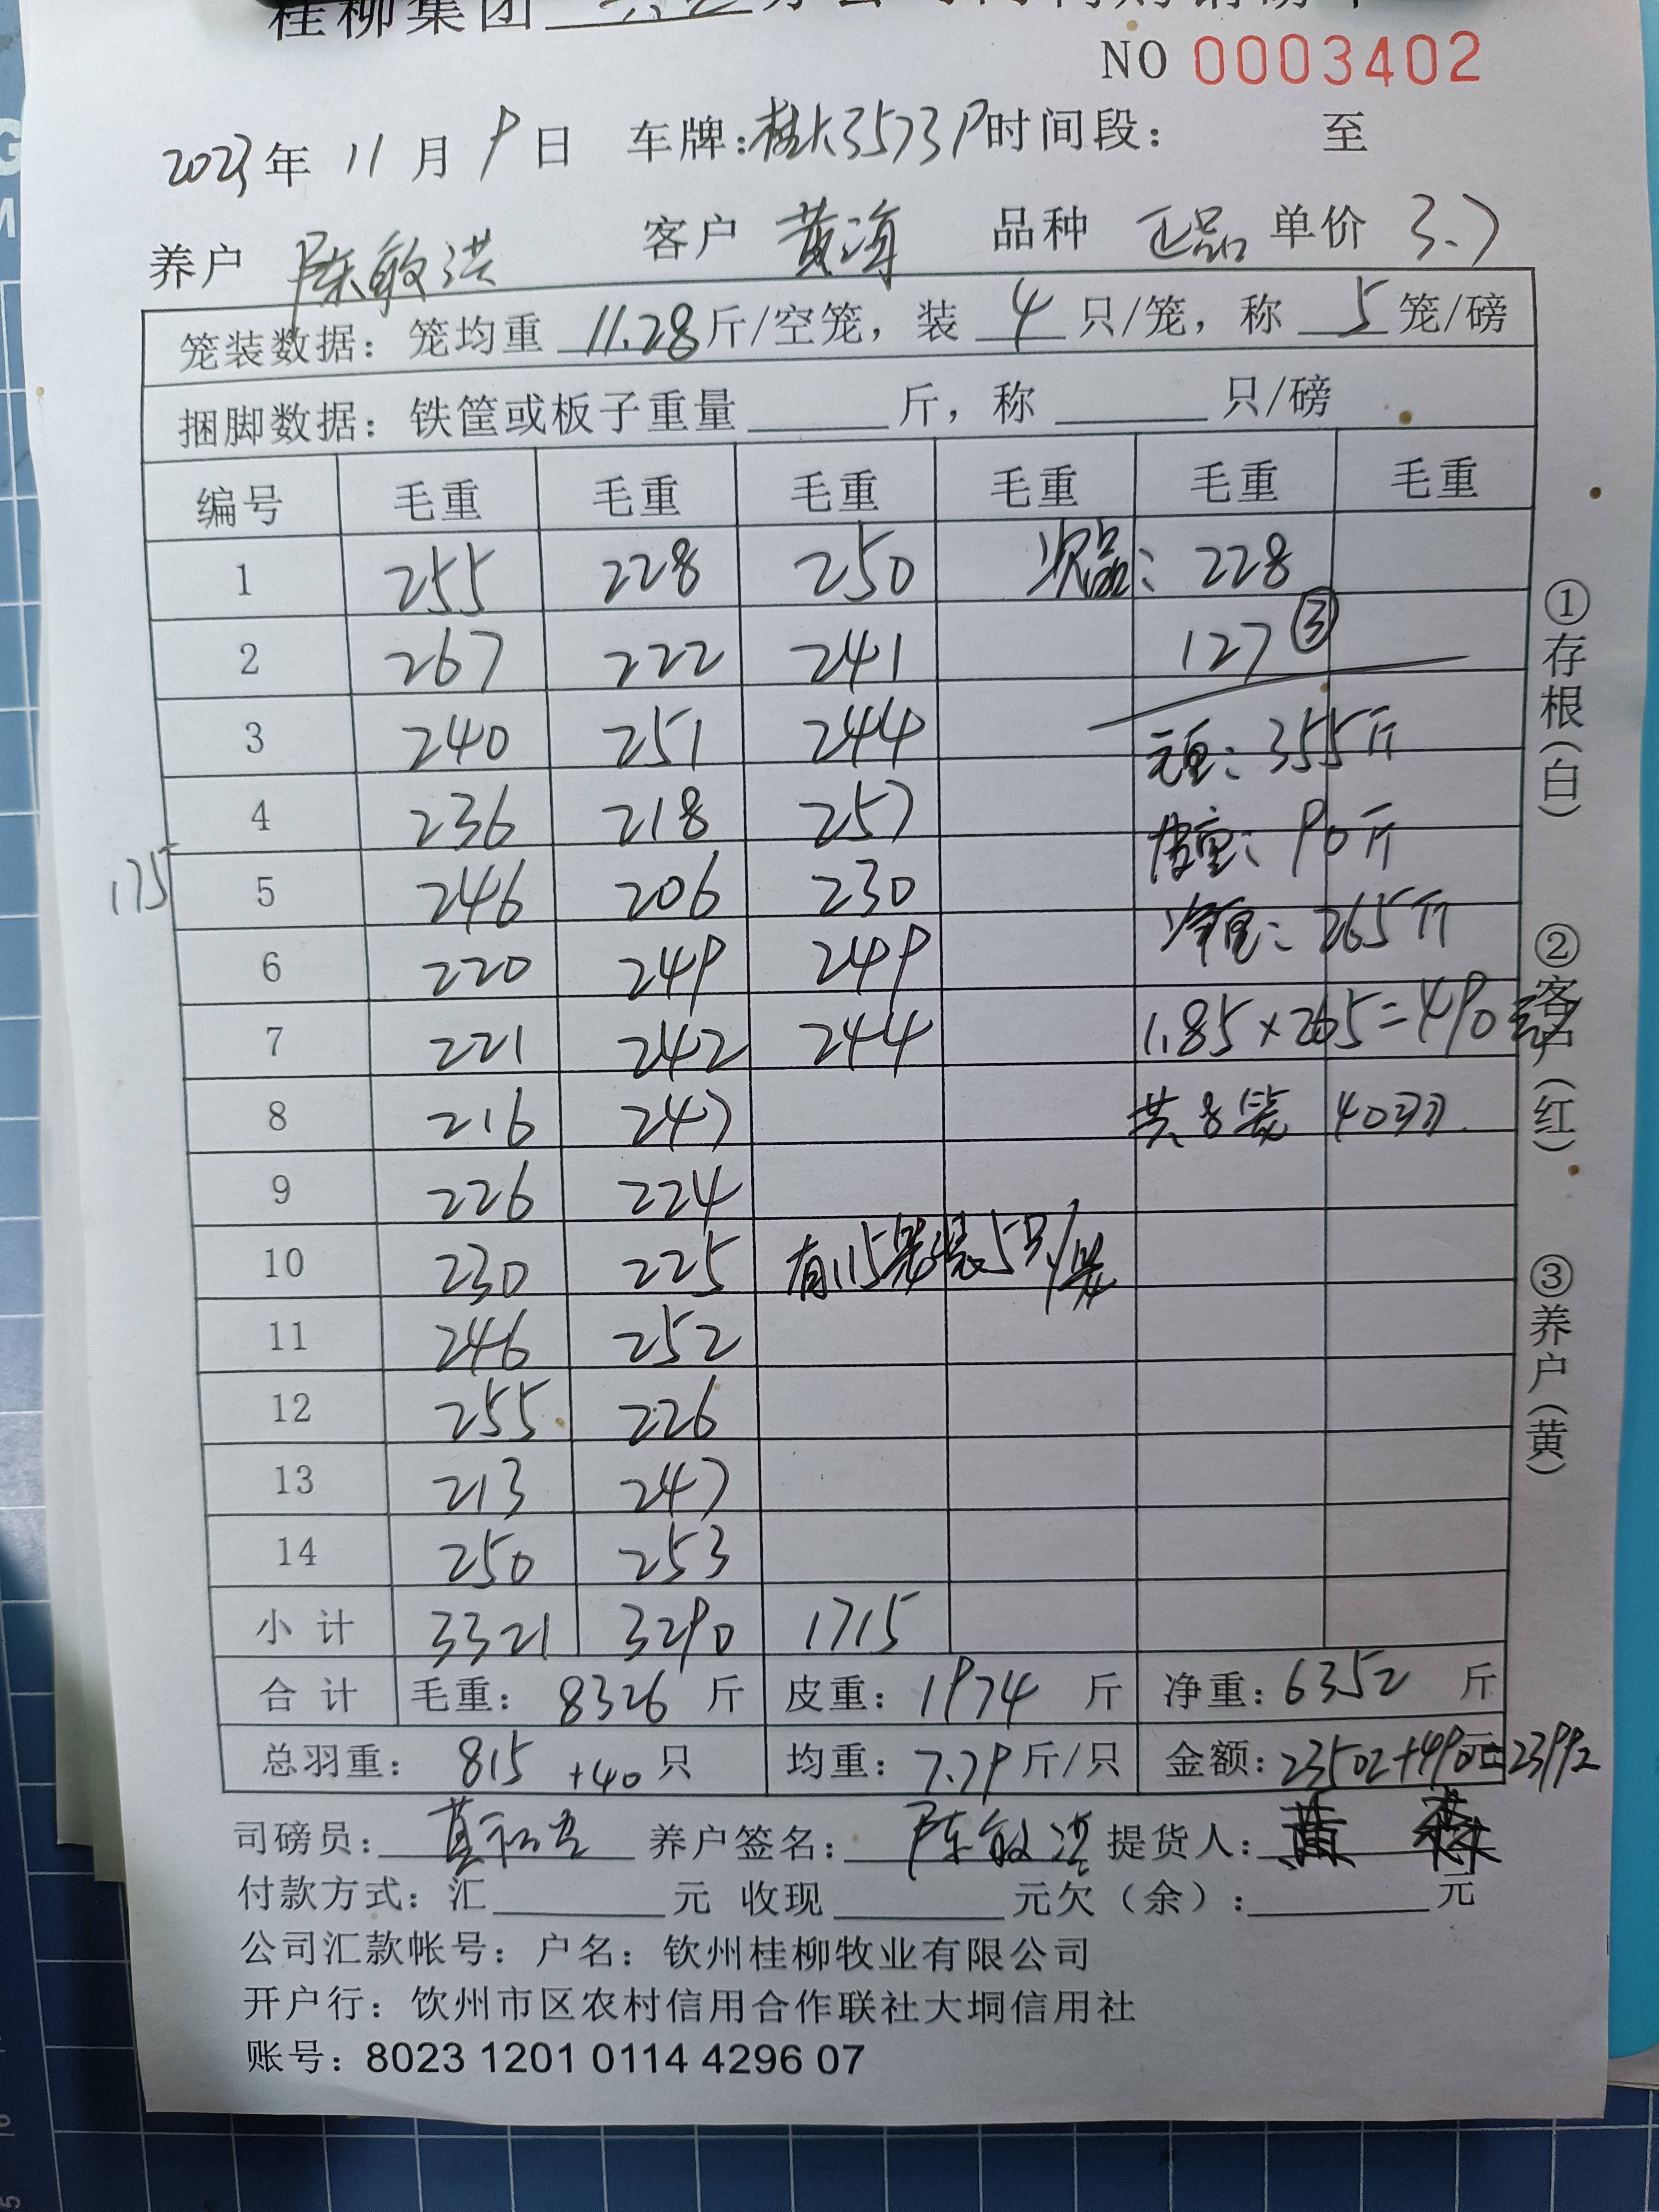 桂柳集团
NO 0003402
2023年 11月 9日 车牌:桂A3573P时间段: 至
养户 陈敏洪 客户 黄海 品种 正品 单价 3.7
笼装数据:笼均重 11.28斤/空笼,装 4 只/笼,称 5 笼/磅
捆脚数据:铁筐或板子重量 斤,称 只/磅
编号 毛重 毛重 毛重 毛重 毛重 毛重
1 255 228 250 次品: 228
2 267 222 241 127 ③
3 240 251 244 毛重: 355斤
4 236 218 257 皮重: 90斤
175 5 246 206 230 净重: 265斤
6 220 249 249
7 221 242 244 1.85×265=490元
8 216 247 共8笼 40羽
9 226 224
10 230 225 有115笼装5只/笼
11 246 252
12 255 226
13 213 247
14 250 253
小计 3321 3290 1715
合计 毛重: 8326 斤 皮重: 1974 斤 净重: 6352 斤
总羽重: 815 +40 只 均重: 7.79斤/只 金额: 23502+490元=23992
司磅员: 养户签名: 陈敏洪 提货人: 黄
付款方式:汇 元 收现 元欠(余): 元
公司汇款帐号:户名:钦州桂柳牧业有限公司
开户行:钦州市区农村信用合作联社大垌信用社
账号:8023 1201 0114 4296 07
①存根(白)
②客户(红)
③养户(黄)